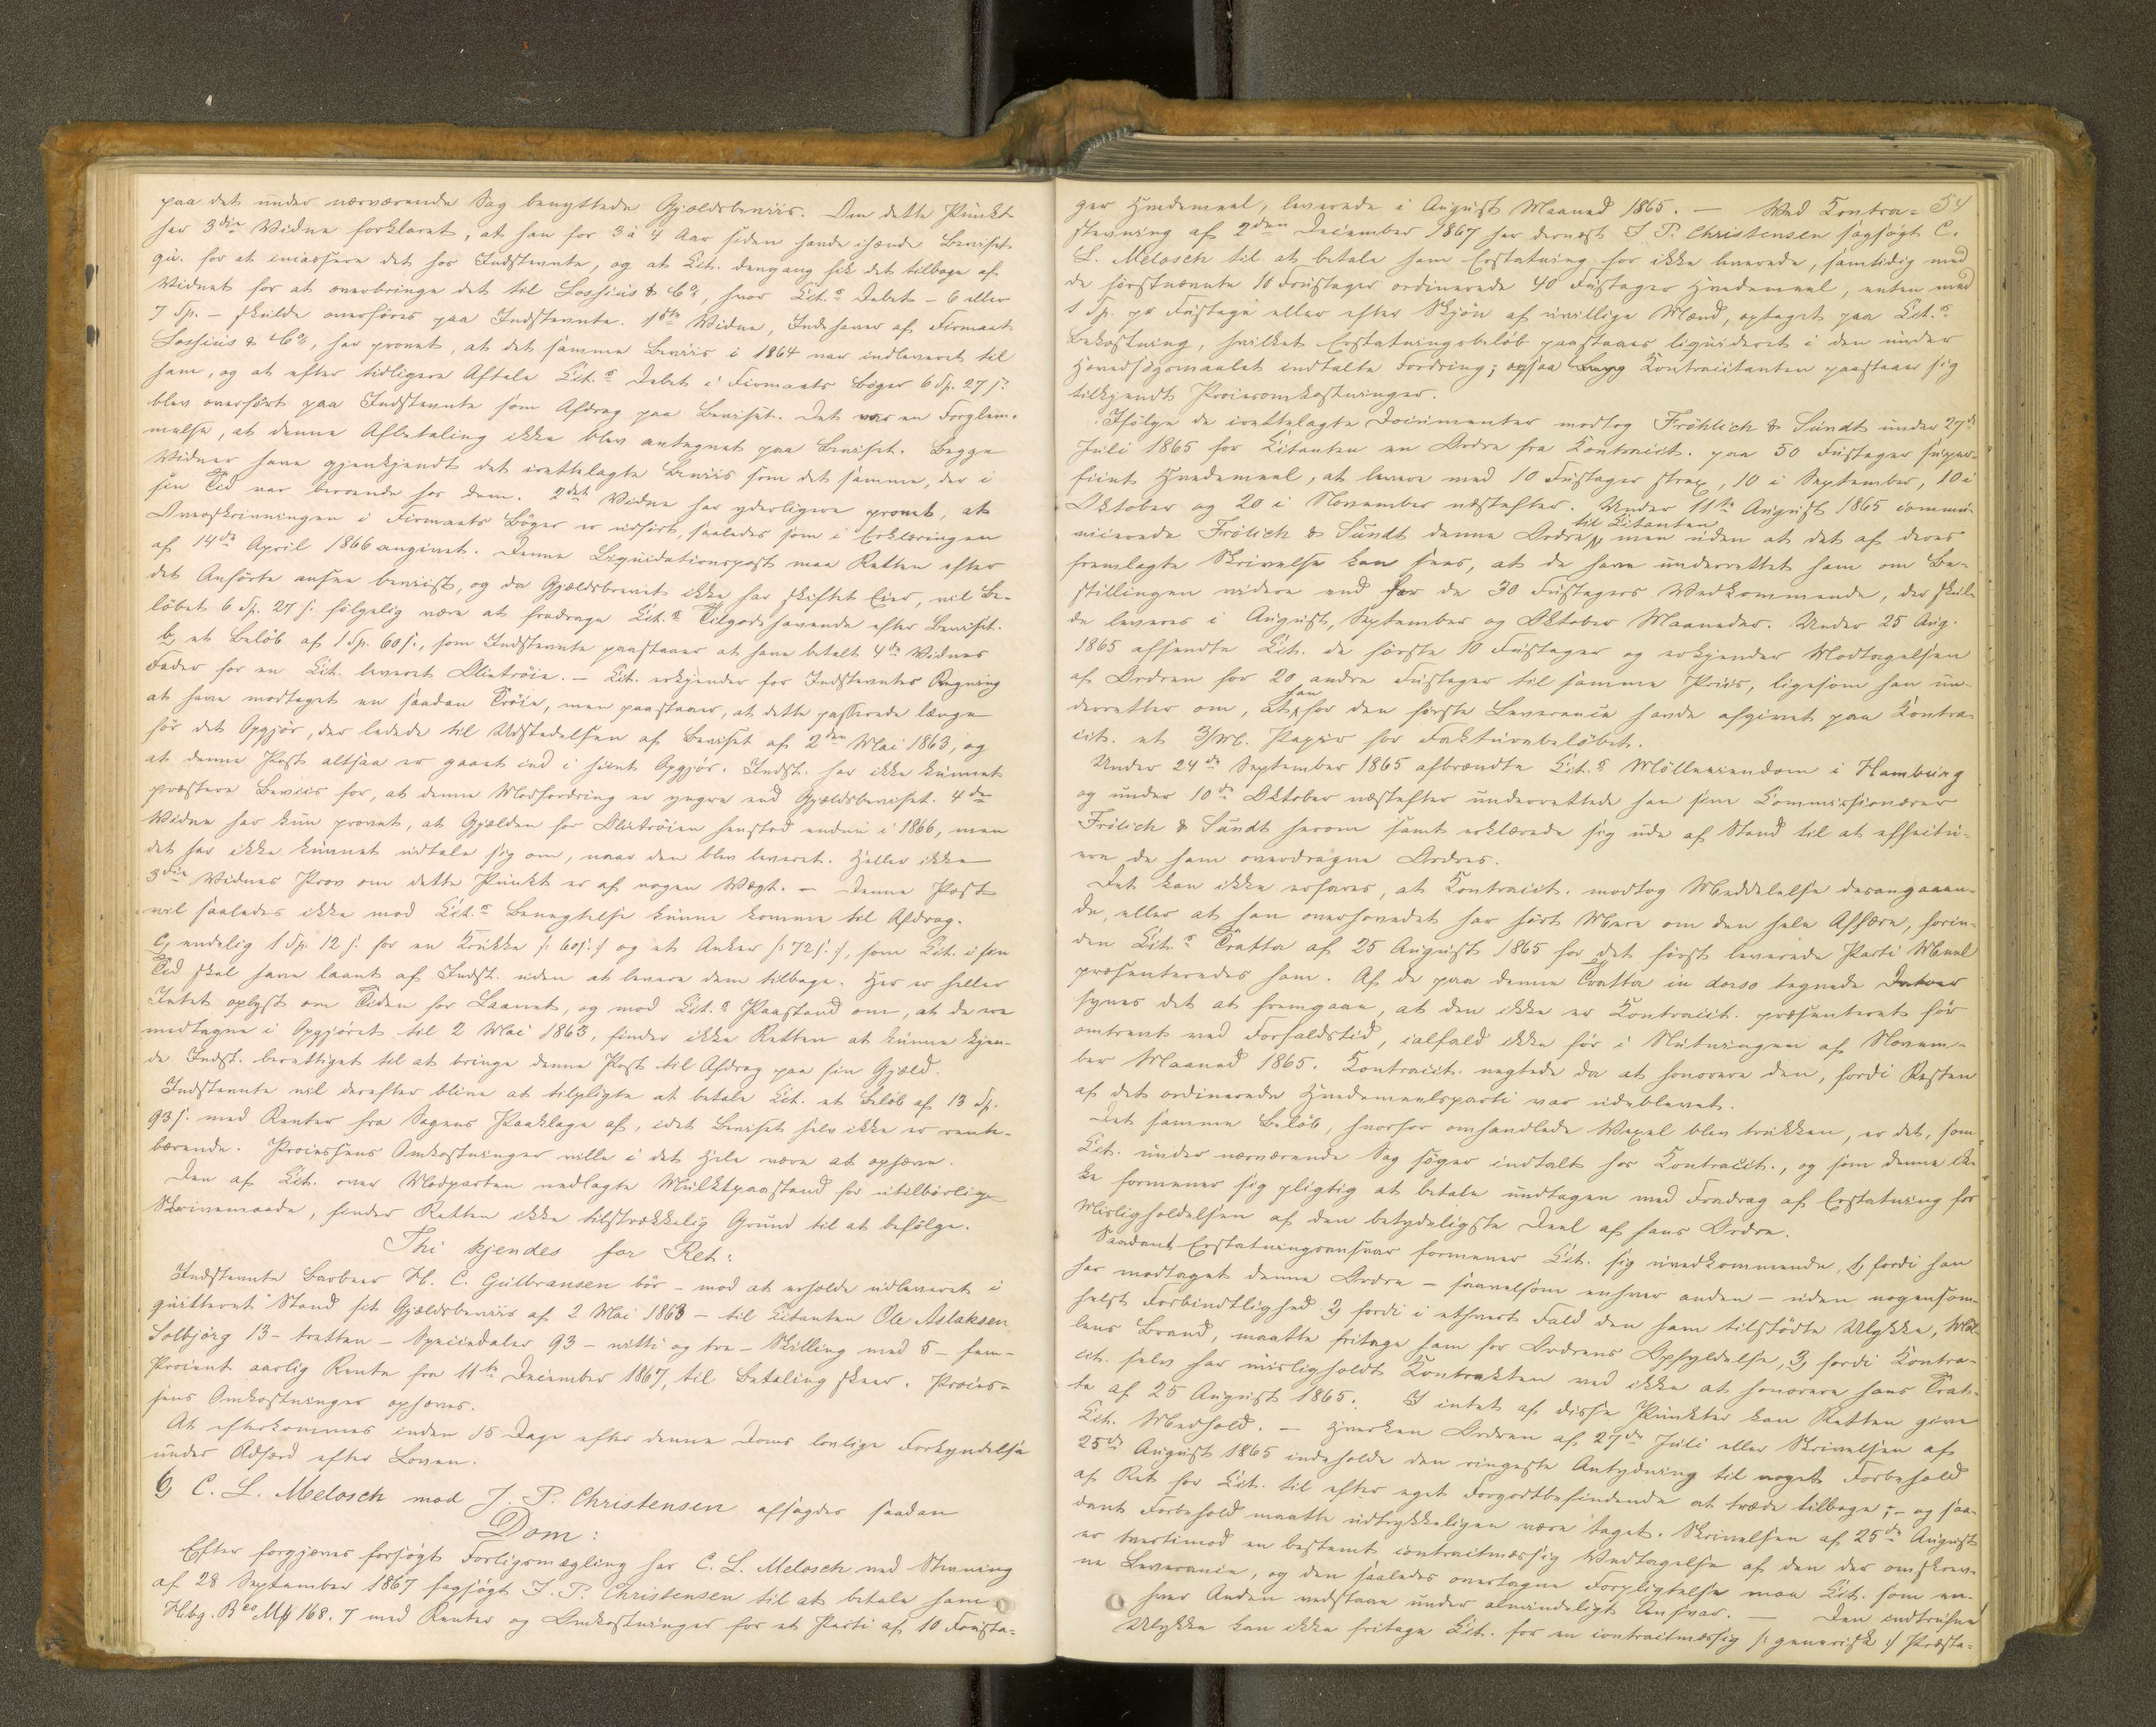 paa det under nærværende Sag benyttede Gjældsbeviis. Om dette Punkt
har 3die Vidne forklaret, at han for 3 à 4 Aar siden havde ihænde Beviset
qu. for at incassere det hos Indstevnte, og at Cit. dengang fik det tilbage af
Vidnet for at overbringe det til Lossius & Co, hvor Cit.s Debet – 6 eller
7 Sp. – skulde overføres paa Indstevnte. 1ste Vidne, Indehaver af Firmaet
Lossius & Co, har provet, at det samme Beviis i 1864 var indleveret til
ham, og at efter tidligere Aftale Cit.s Debet i Firmaets Bøger 6 Sp. 27 s.
blev overført paa Indstevnte som Afdrag paa Beviset. Det var en Forglem-
melse, at denne Afbetaling ikke blev antegnet paa Beviset. Begge
Vidner have gjenkjendt det irettelagte Beviis som det samme, der i
sin Tid var beroende hos dem. 2det Vidne har yderligere provet, at
Overskrivningen i Firmaets Bøger er udført, saaledes som i Erklæringen
af 14de April 1866 angivet. Denne Liquidationspost maa Retten efter
det Anførte ansee beviist, og da Gjældsbrevet ikke har skiftet Eier, vil Be-
løbet 6 Sp. 27 s. følgelig være at fradrage Cit.s Tilgodehavende efter Beviset.
b, et Beløb af 1 Sp. 60 s., som Indstevnte paastaaer at have betalt 4de Vidnes
Fader for en Cit. leveret Olietrøie. – Cit. erkjender for Indstevntes Regning
at have modtaget en saadan Trøie, men paastaaer, at dette passerede længe
før det Opgjør, der ledede til Udstedelsen af Beviset af 2den Mai 1863, og
at denne Post altsaa er gaaet ind i hiint Opgjør. Indst. har ikke kunnet
præstere Beviis for, at denne Modfordring er yngre end Gjældsbeviset. 4de
Vidne har kun provet, at Gjælden for Olietrøien henstod endnu i 1866, men
det har ikke kunnet udtale sig om, naar den blev leveret. Heller ikke
3die Vidnes Prov om dette Punkt er af nogen Vægt. – Denne Post
vil saaledes ikke mod Cit.s Benegtelse kunne komme til Afdrag.
c, endelig 1 Sp. 12 s. for en Krukke /: 60 s. :/ og et Anker /: 72 s. :/, som Cit. i sin
Tid skal have laant af Indst. uden at levere dem tilbage. Her er heller
Intet oplyst om Tiden for Laanet, og mod Cit.s Paastand om, at de ere
medtagne i Opgjøret til 2 Mai 1863, finder ikke Retten at kunne kjen-
de Indst. berettiget til at bringe denne Post til Afdrag paa sin Gjæld.
Indstevnte vil derefter blive at tilpligte at betale Cit. et Beløb af 13 Sp.
93 s. med Renter fra Sagens Paaklage af, idet Beviset selv ikke er rente-
bærende. Processens Omkostninger ville i det Hele være at ophæve.
Den af Cit. over Modparten nedlagte Mulktpaastand for utilbørlig
Skrivemaade, finder Retten ikke tilstrækkelig Grund til at befølge.
Thi kjendes for Ret:
Indstevnte Barbeer H. C. Gulbransen bør – mod at erholde udleveret i
quitteret Stand sit Gjældsbeviis af 2 Mai 1863 – til Citanten Ole Aslaksen
Solbjørg 13 – tretten – Speciedaler 93 – nitti og tre – Skilling med 5 – fem –
Procent aarlig Rente fra 11te December 1867, til Betaling skeer. Proces-
sens Omkostninger ophæves.
At efterkommes inden 15 Dage efter denne Doms lovlige Forkyndelse
under Adfærd efter Loven.
6, C. L. Melosch mod J. P. Christensen afsagdes saadan
Dom:
Efter forgjæves forsøgt Forligsmægling har C. L. Melosch ved Stevning
af 28 September 1867 sagsøgt J. P. Christensen til at betale ham
Hbg. Bco Mk 168. 7 med Renter og Omkostninger for et Parti af 10 Fusta-
54
ger Hvedemeel, leverede i August Maaned 1865. – Ved Kontra-
stevning af 2den December 1867 har dernæst J. P. Christensen sagsøgt C.
L. Melosch til at betale ham Erstatning for ikke leverede, samtidig med
de førstnævnte 10 Foustager ordinerede 40 Fustager Hvedemeel, enten med
1 Sp. pr Fustage eller efter Skjøn af uvillige Mænd, optaget paa Cit.s
Bekostning, hvilket Erstatningsbeløb paastaaes liquideret i den under
Hovedsøgsmaalet indtalte Fordring; ogsaa Kontracitanten paastaaer sig
tilkjendt Procesomkostninger.
Ifølge de irettelagte Documenter modtog Fröhlich & Sundt under 27de
Juli 1865 for Citanten en Ordre fra Kontracit. paa 50 Fustager super-
fiint Hvedemeel, at levere med 10 Fustager strax, 10 i September, 10 i
Oktober og 20 i November næstefter. Under 11te August 1865 commu-
nicerede Frölich & Sundt denne Ordre til Citanten, men uden at det af deres
fremlagte Skrivelse kan sees, at de have underrettet ham om Be-
stillingen videre end for de 30 Fustagers Vedkommende, der skul-
de leveres i August, September og Oktober Maaneder. Under 25 Aug.
1865 afsendte Cit. de første 10 Fustager og erkjender Modtagelsen
af Ordren for 20 andre Fustager til samme Priis, ligesom han un-
derretter om, at han for den første Leverance havde afgivet paa Kontra-
cit. et 3/Md. Papir for Fakturabeløbet.
Under 24de September 1865 afbrændte Cit.s Mølleeiendom i Hamburg
og under 10de Oktober næstefter underrettede han sine Commissionærer
Frölich & Sundt herom samt erklærede sig ude af Stand til at effectu-
ere de ham overdragne Ordres.
Det kan ikke erfares, at Kontracit. modtog Meddelelse desangaaen-
de, eller at han overhovedet har hørt Mere om den hele Affære, forin-
den Cit.s Tratta af 25 August 1865 for det først leverede Parti Meel
præsenteredes ham. Af de paa denne Tratta in dorso tegnede Datoer
synes det at fremgaae, at den ikke er Kontracit. præsenteret før
omtrent ved Forfaldstid, ialfald ikke før i Slutningen af Novem-
ber Maaned 1865. Kontracit. negtede da at honorere den, fordi Resten
af det ordinerede Hvedemeelsparti var udeblevet.
Det samme Beløb, hvorfor omhandlede Vexel blev trukken, er det, som
Cit. under nærværende Sag søger indtalt hos Kontracit., og som denne ik-
ke formener sig pligtig at betale undtagen med Fradrag af Erstatning for
Misligholdelsen af den betydeligste Deel af hans Ordre.
Saadant Erstatningsansvar formener Cit. sig uvedkommende, 1, fordi han
har modtaget denne Ordre – saavelsom enhver anden – uden nogensom-
helst Forbindtlighed 2, fordi i ethvert Fald den ham tilstødte Ulykke, Møl-
lens Brand, maatte fritage ham for Ordrens Opfyldelse, 3, fordi Kontra-
cit. selv har misligholdt Kontrakten ved ikke at honorere hans Trat-
te af 25 August 1865. I intet af disse Punkter kan Retten give
Cit. Medhold. – Hverken Ordren af 27de Juli eller Skrivelsen af
25de August 1865 indeholde den ringeste Antydning til noget Forbehold
af Ret for Cit. til efter eget Forgodtbefindende at træde tilbage; – og saa-
dant Forbehold maatte udtrykkeligen være taget. Skrivelsen af 25de August
er tvertimod en bestemt contractmæssig Vedtagelse af den der omskrev-
ne Leverance, og den saaledes overtagne Forpligtelse maa Cit. som en-
hver Anden vedstaae under almindeligt Ansvar. – Den indtrufne
Ulykke kan ikke fritage Cit. for en contractmæssig /: generisk :/ Præsta-